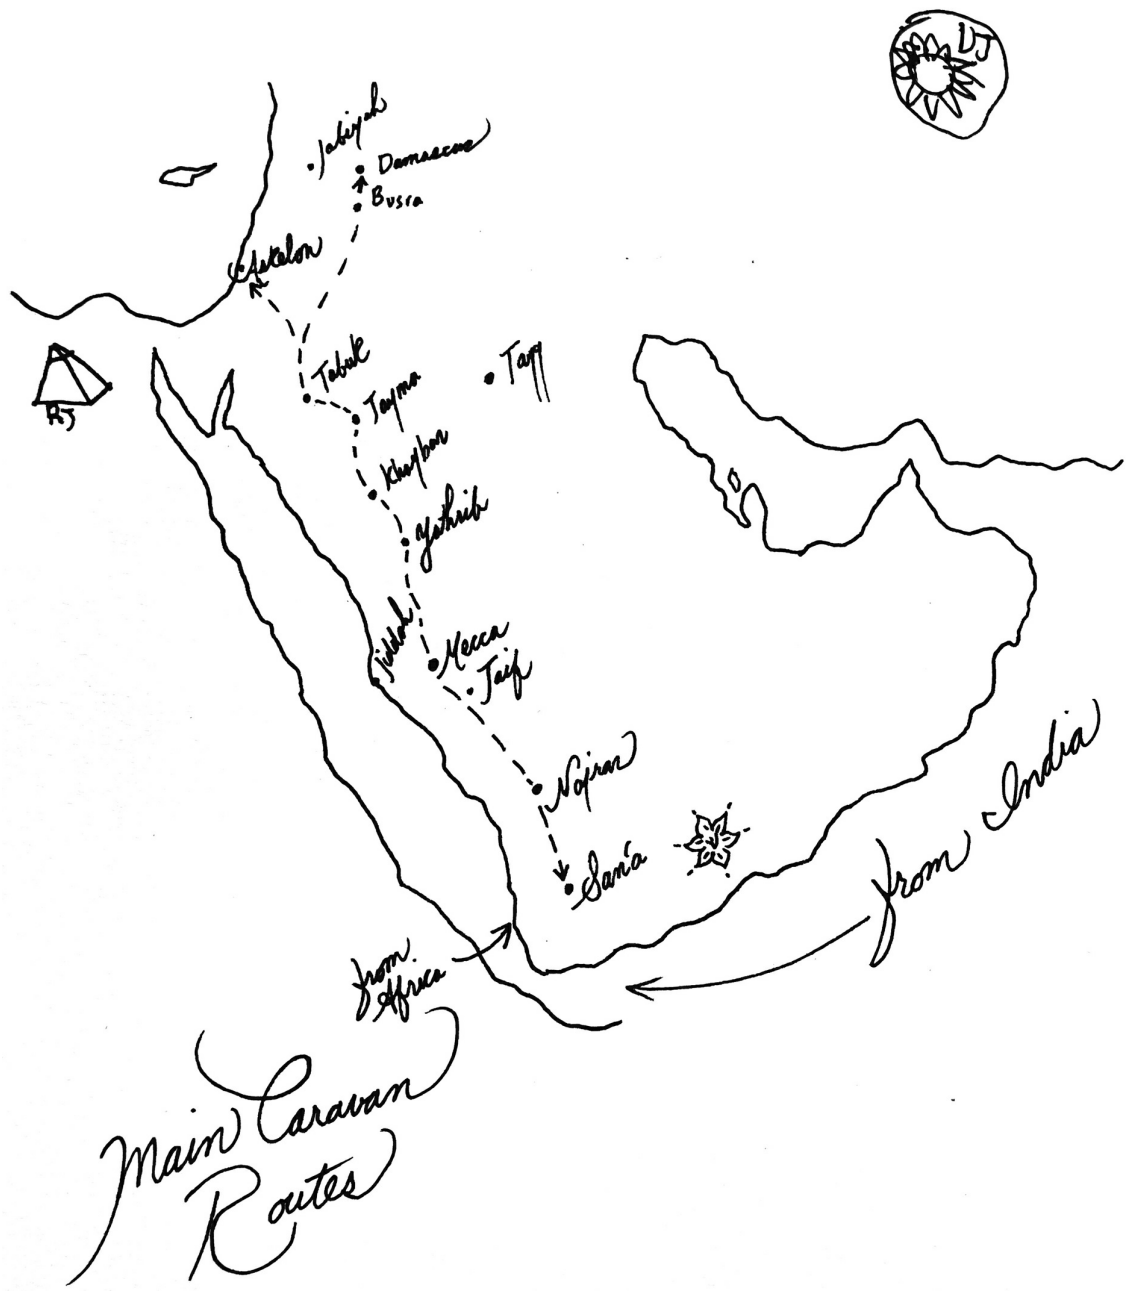 DJ
Jabiyah
Damascus
Busra
Askelon
RJ
Tabuk
Tayma
Khaybar
Yathrib
Jiddah
Mecca
Taif
Najran
San'a
from India
from
Africa
Main Caravan
Routes